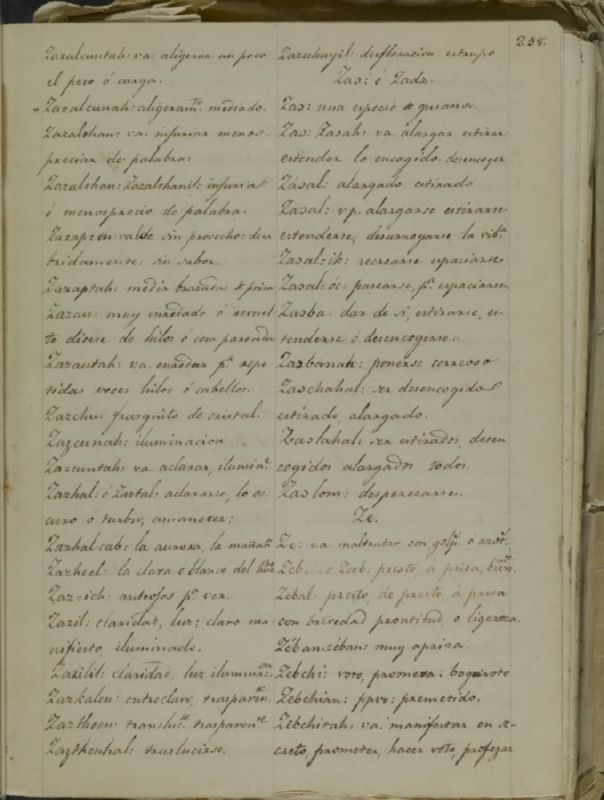 238.
Zazalcuntah: va: aligerar un poco
el peso ó carga.
+ Zazalcunah: aligeram.to mediado.
Zazalthan: va. injuriar menos-
preciar de palabra:
Zazalthan: Zazalthanil: injuria
ó menosprecio de palabra.
sin provecho: desa
bridamente: sin sabor.
Zazaptah: media brazada
Zazau: muy enredado ó revuel
to dicese de hilos ó cosa parecida
Zazautah: va. enredar p.r repe
tidas veces hilos ó cabellos.
Zazchu: frasquito de cristal.
Zazcunah: iluminacion
Zazcuntah: va aclarar, ilumin.r
Zazhal: ó Zastal: aclararse, lo os-
curo ó turbio, amanecer:
Zazhal cab: la aurora, la mañan.a
Zazheel: la clara ó blanco del huevo
Zaz-ich: anteojos p.a ver.
Zazil: claridad, luz: claro ma-
nifiesto, iluminado.
Zazilil: claridad, luz iluminac.on
Zazkalen: entreclaro, trasparen.te
Zaztheen: transluc.te trasparen.te
Zazthenhal: traslucirse.
Zazuhuyil: desfloracion estrupo
Zas: ó Zadz.
Zas: una especie de gusanos.
Zas: Zasah: va alargar estirar
estender lo encogido. desencoger
Zásal: alargado estirado
Zasal: vp. alargarse estirarse
estenderse, desarroyarse la vib.a
Zasal-ik: recrearse espaciarse
Zasal-óc: pasearse, p.r espaciarse.
Zasba: dar de sí, estirarse, es-
tenderse ó desencogerse.
Zasbanah: ponerse correoso
Zaschahal: ser desencogido
estirado, alargado.
Zaslahal: ser estirados, desen
cogidos alargados todos.
Zaslom: desperezarse.
Ze.
Ze: va maltratar con golp.s o azot.s
Zeb: ó Zeeb: presto, á prisa, brev.te
Zebal: presto, de presto, á prisa
con brevedad prontitud, o ligereza
Zéban-zéban: muy apriza
Zebchi: voto, promesa:
Zebchian: ppro: prometido.
Zebchitah: va. manifestar en se-
creto, prometer, hacer voto, profezar